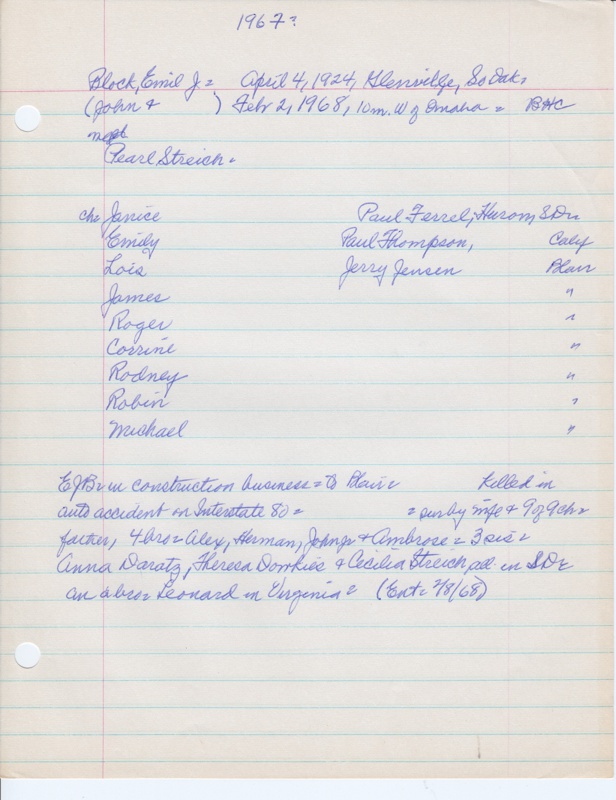 1967?
Block, Emil J = April 4, 1924, Glenville, So Dak =
(John & ) Febr 2, 1968, 10 m. W of Omaha = BHC
Pearl Streich =
ch = Janice Paul Ferrel, Huron, S D =
Emily Paul Thompson, Calif
Lois Jerry Jensen Blair
James "
Roger "
Corrine "
Rodney "
Robin "
Michael "
EJB = in construction business = to Blair = Killed in
auto accident on Interstate 80 = = sur by wife & 9 of 9 ch =
father, 4 bro = Alex, Herman, John jr & Ambrose = 3 sis =
Anna Daratz, Theresa Dowkies & Cecilia Streich, all in S D =
an a bro = Leonard in Virginia = (Ent = 2/8/68)